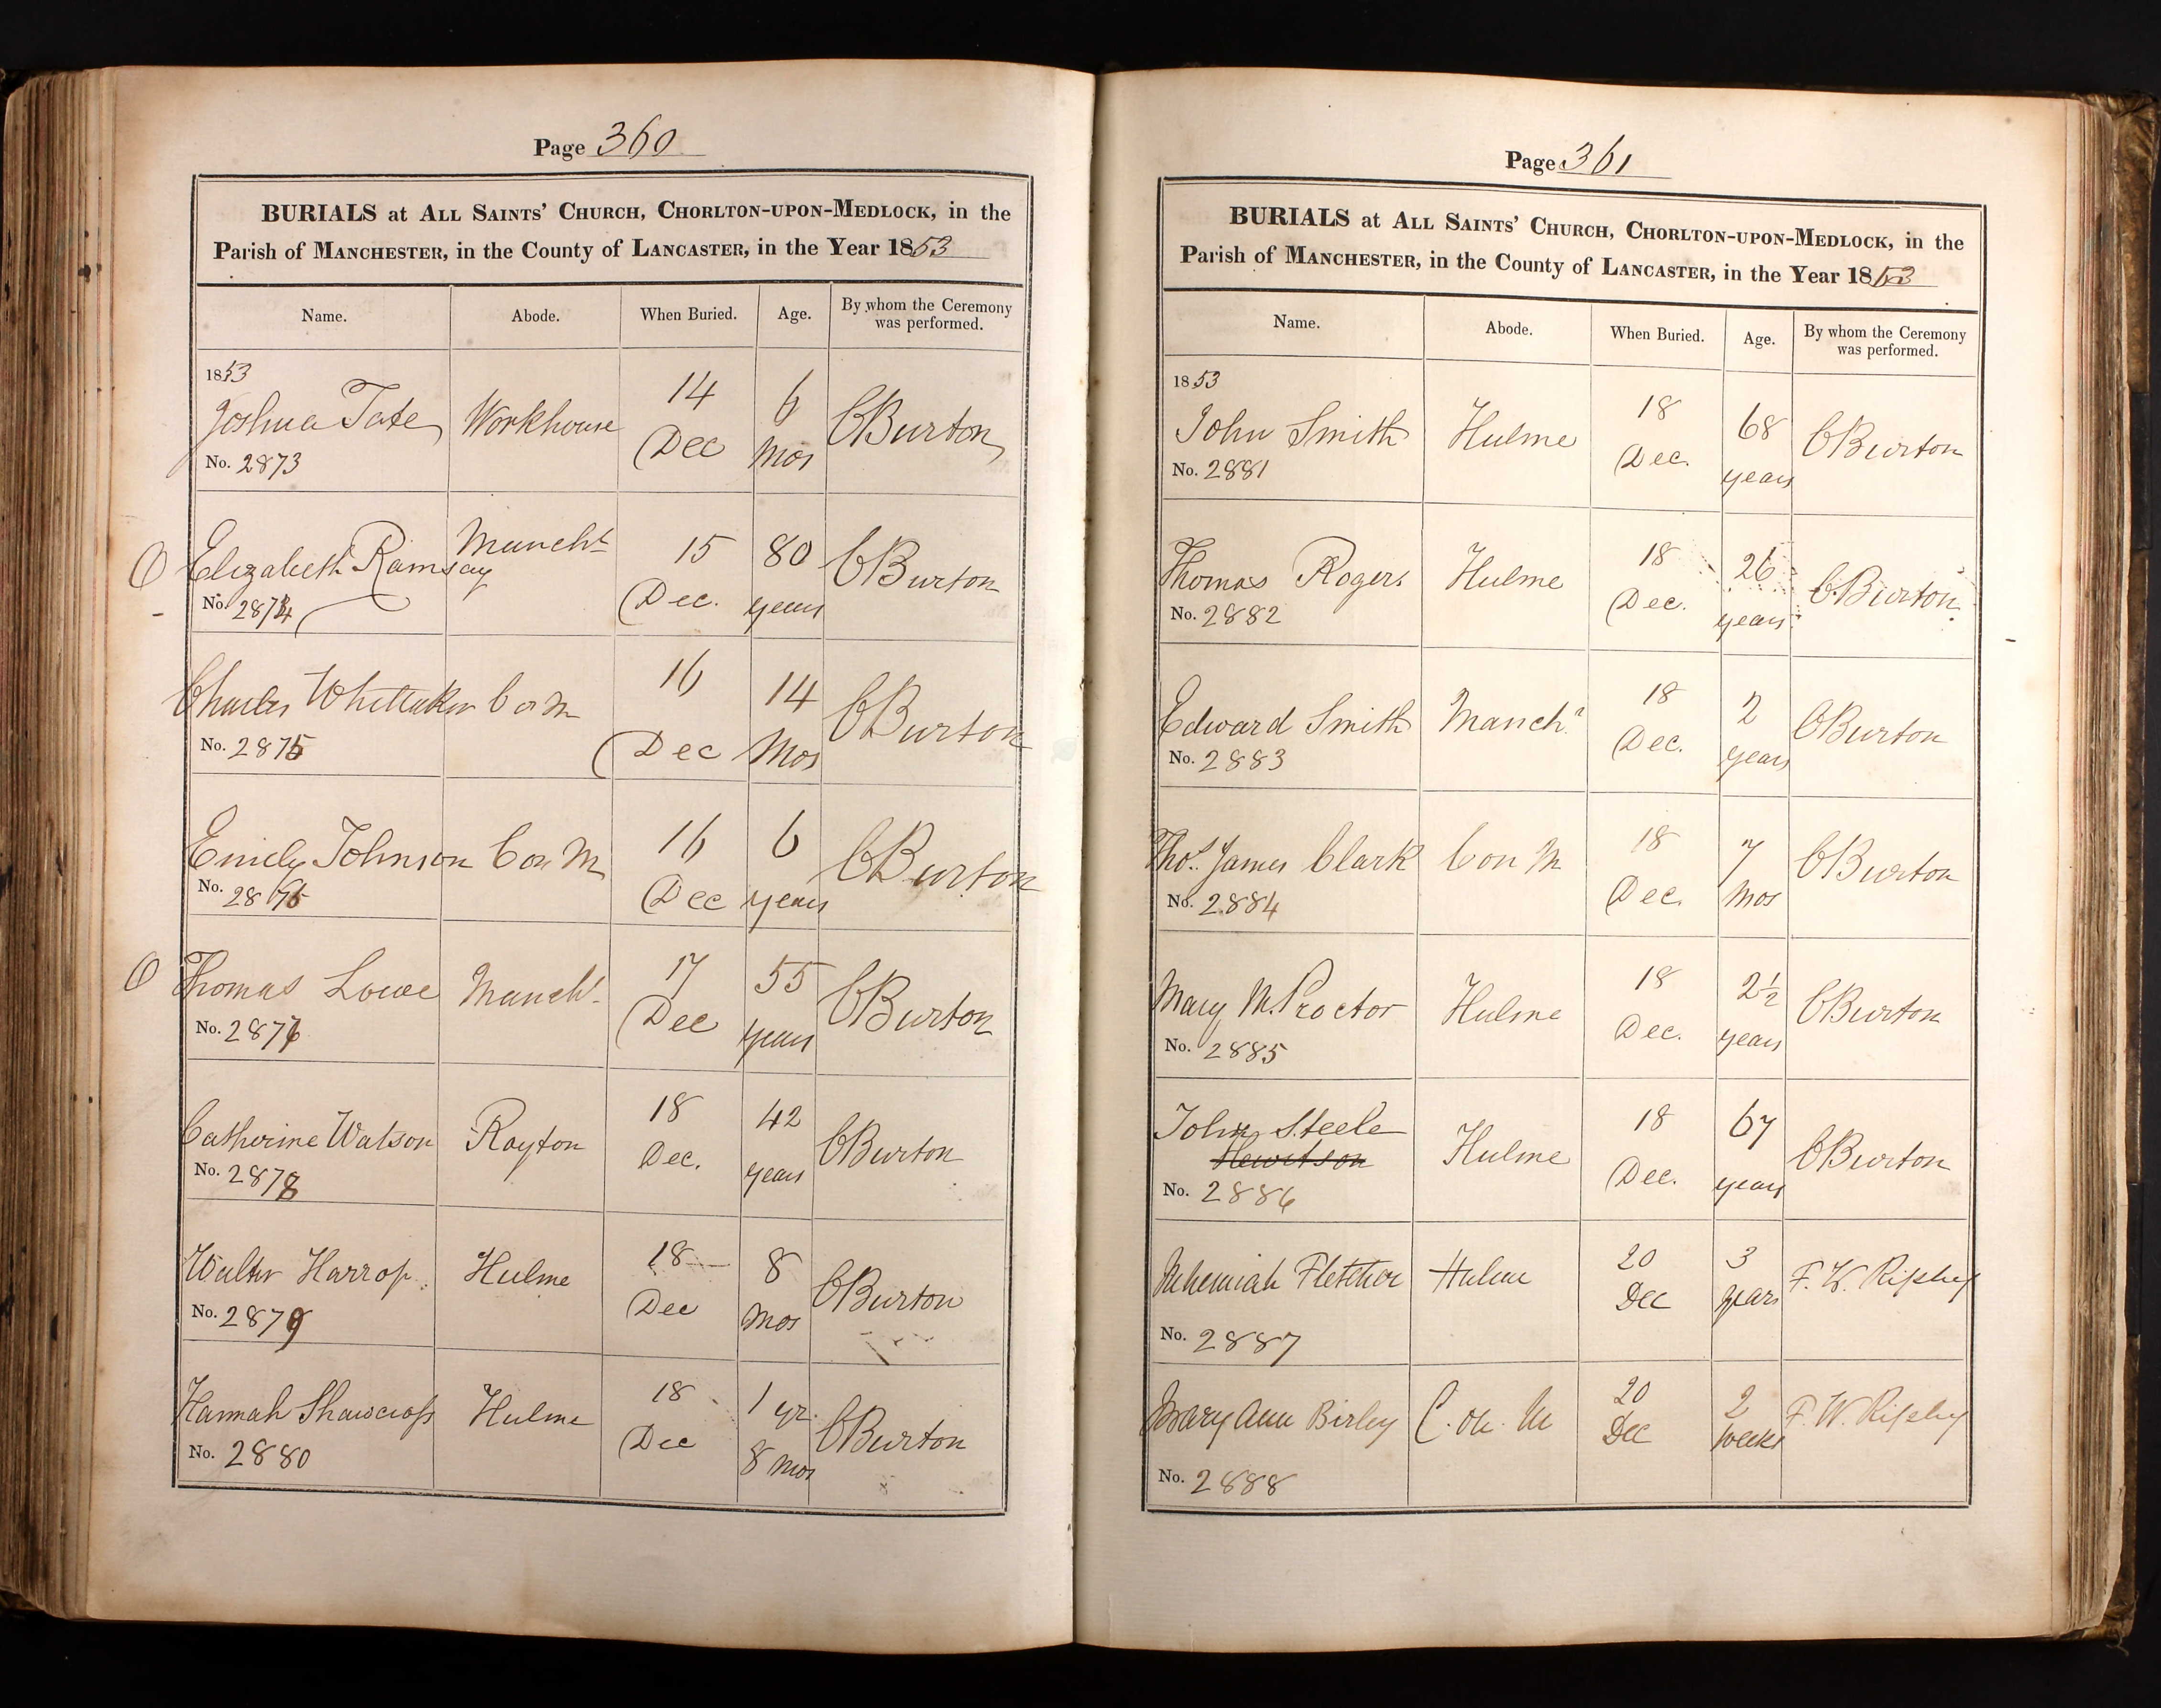 Page 360
BURIALS at ALL SAINTS' CHURCH, CHORLTON-UPON-MEDLOCK, in the
Parish of MANCHESTER, in the County of LANCASTER, in the Year 1853
Name. Abode. When Buried. Age. By whom the Ceremony was performed.
1853
Joshua Tate Workhouse 14 Dec 6 Mos C Burton
No. 2873
O Elizabeth Ramsay Mancht 15 Dec. 80 years C Burton
No. 2874
Charles Whittaker C on M 16 Dec 14 Mos C Burton
No. 2875
Emily Johnson C on M 16 Dec 6 years C Burton
No. 2876
O Thomas Lowe Mancht 17 Dec 55 years C Burton
No. 2877
Catherine Watson Royton 18 Dec. 42 years C Burton
No. 2878
Walter Harrop Hulme 18 Dec 8 Mos C Burton
No. 2879
Hannah Shawcross Hulme 18 Dec 1 yr. 8 mos C Burton
No. 2880
Page 361
BURIALS at ALL SAINTS' CHURCH, CHORLTON-UPON-MEDLOCK, in the
Parish of MANCHESTER, in the County of LANCASTER, in the Year 1853
Name. Abode. When Buried. Age. By whom the Ceremony was performed.
1853
John Smith Hulme 18 Dec. 68 years C Burton
No. 2881
Thomas Rogers Hulme 18 Dec. 26 years C Burton
No. 2882
Edward Smith Manchr 18 Dec. 2 years C Burton
No. 2883
Thos. James Clark C on M 18 Dec. 7 Mos C Burton
No. 2884
Mary M. Proctor Hulme 18 Dec. 2½ years C Burton
No. 2885
John Steele Hulme 18 Dec. 67 years C Burton
Hewitson
No. 2886
Nehemiah Fletcher Hulme 20 Dec 3 years F. W. Ripley
No. 2887
Mary Ann Birley C. on M 20 Dec 2 weeks F. W. Ripley
No. 2888